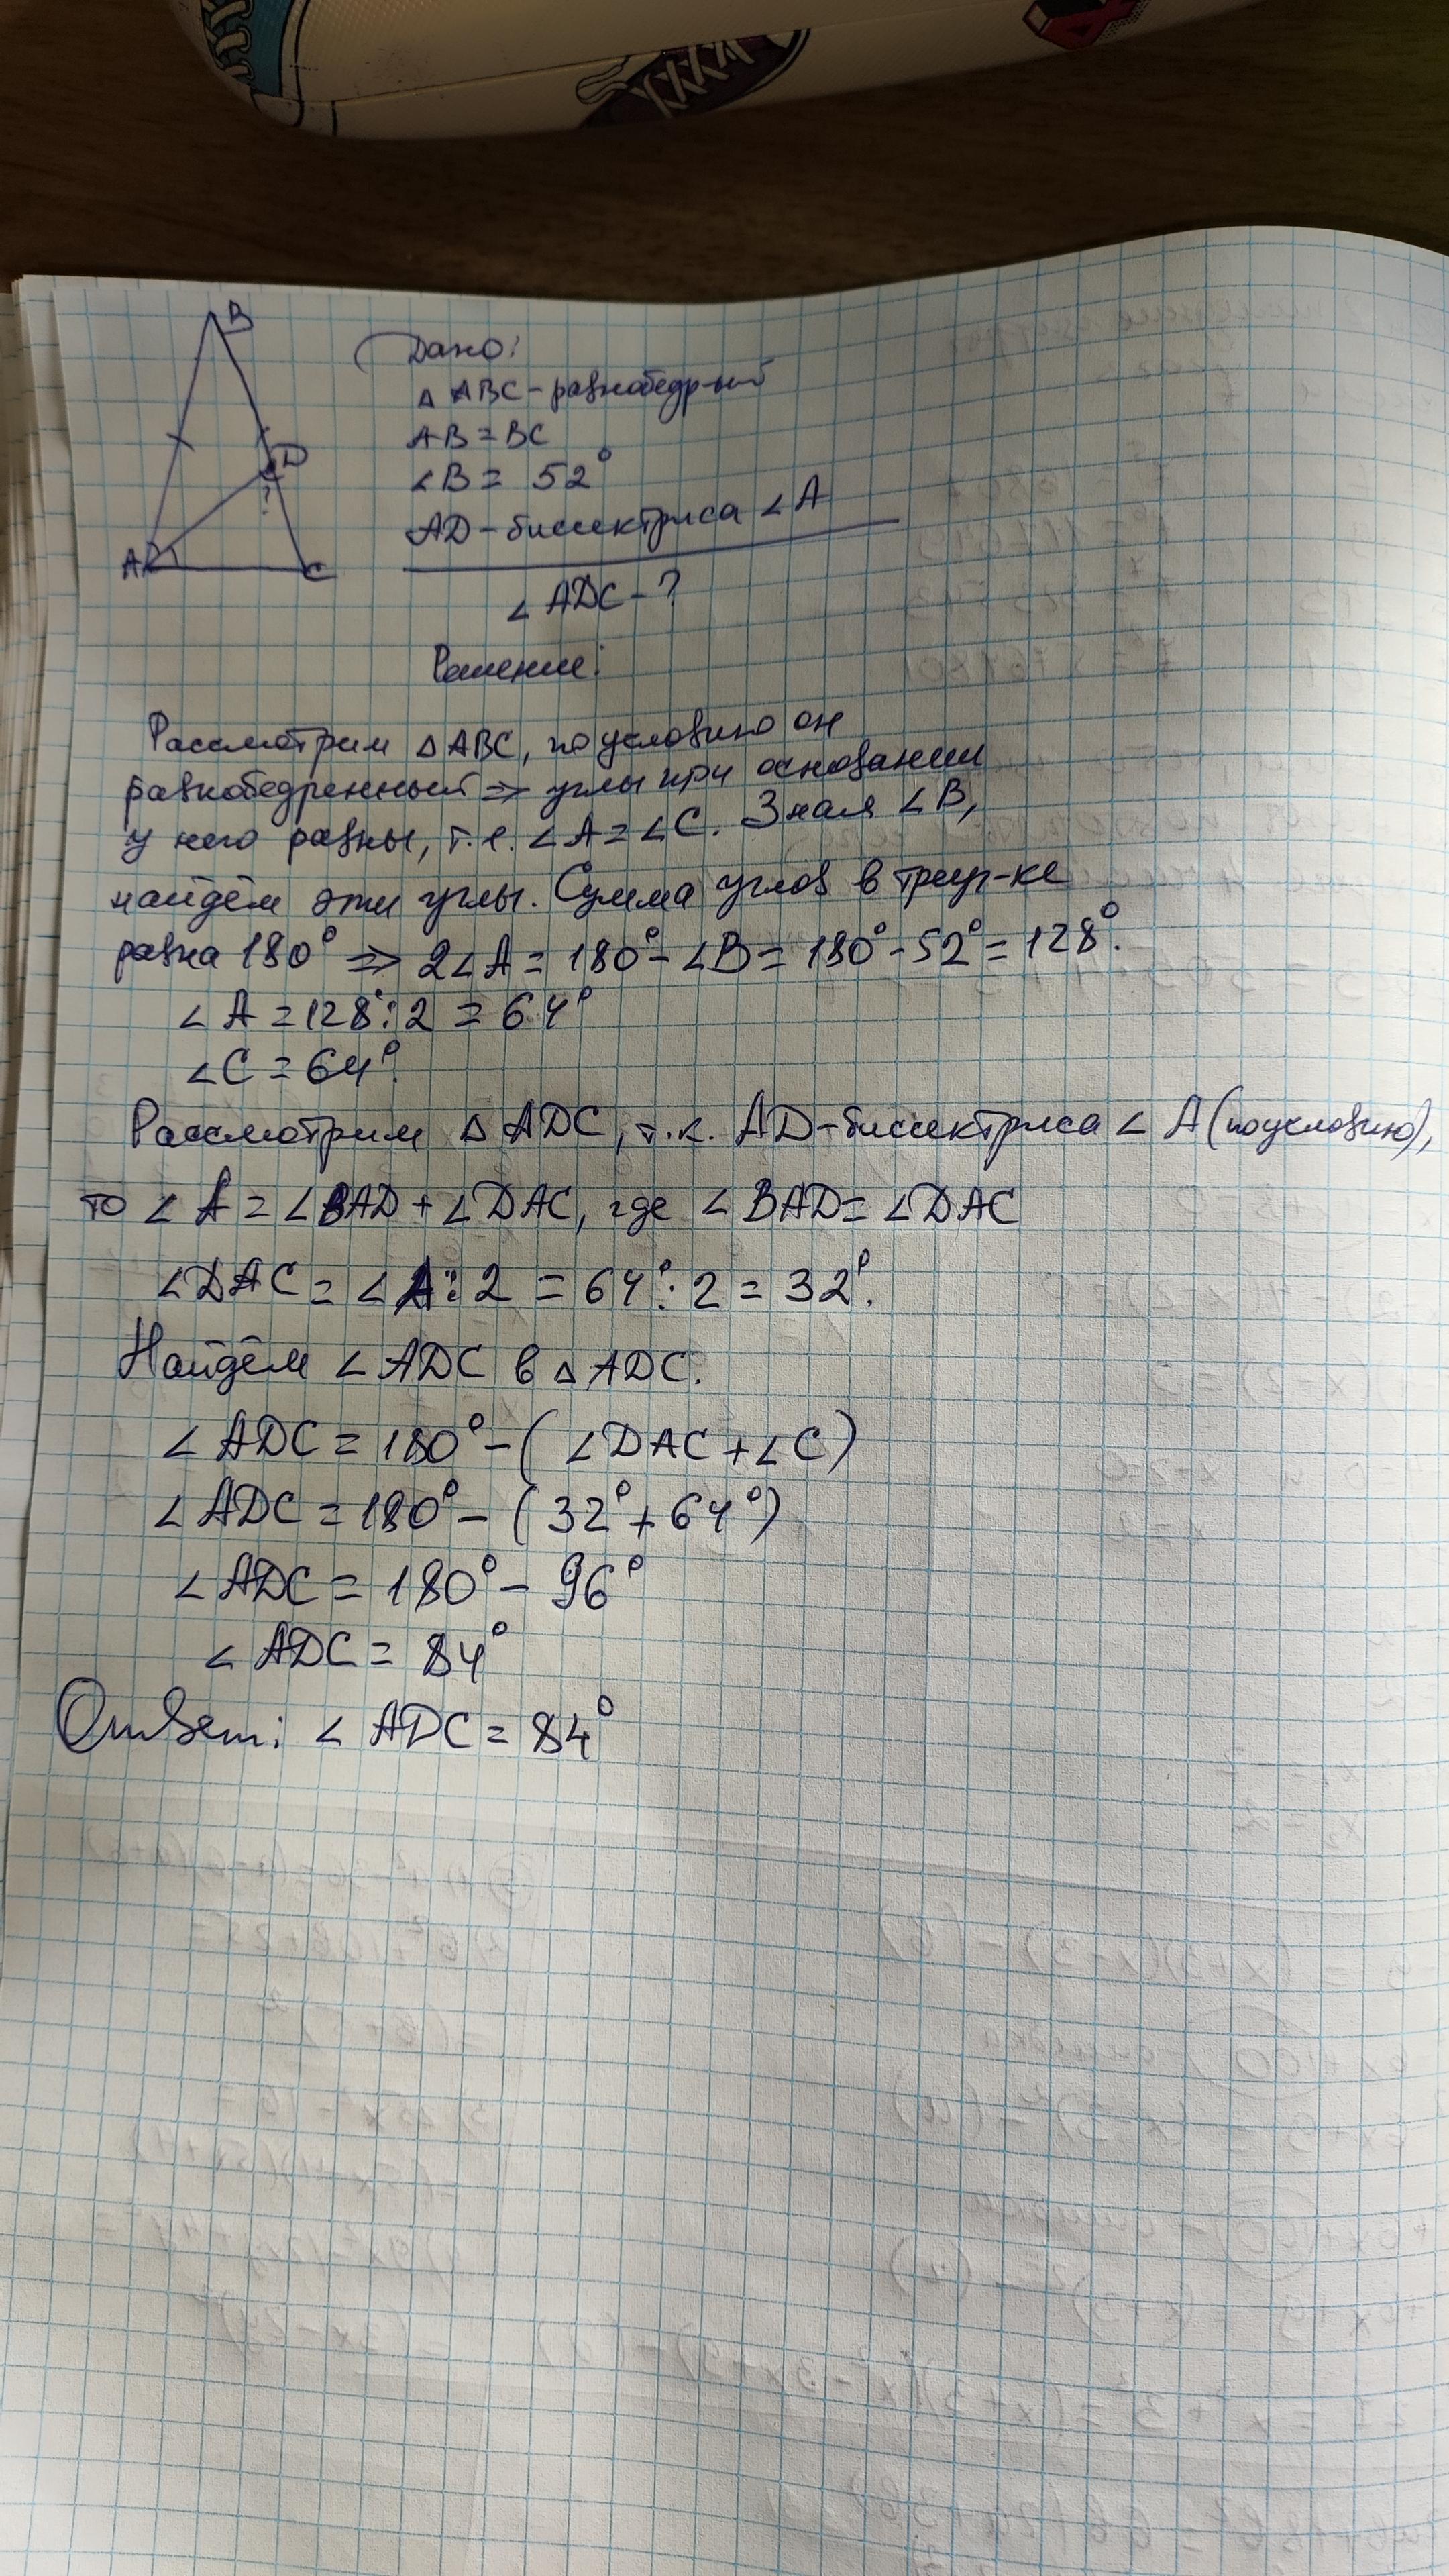 B
D
?
A
C
Дано:
△ ABC - равнобедр-ный
AB = BC
∠B = 52°
AD - биссектриса ∠A
∠ADC - ?
Решение:
Рассмотрим △ABC, по условию он
равнобедренный ⇒ углы при основании
у него равны, т.е. ∠A = ∠C. Зная ∠B,
найдём эти углы. Сумма углов в треуг-ке
равна 180° ⇒ 2∠A = 180° - ∠B = 180° - 52° = 128°.
∠A = 128° : 2 = 64°
∠C = 64°.
Рассмотрим △ADC, т.к. AD - биссектриса ∠A (по условию),
то ∠A = ∠BAD + ∠DAC, где ∠BAD = ∠DAC
∠DAC = ∠A : 2 = 64° : 2 = 32°.
Найдём ∠ADC в △ADC.
∠ADC = 180° - (∠DAC + ∠C)
∠ADC = 180° - (32° + 64°)
∠ADC = 180° - 96°
∠ADC = 84°
Ответ: ∠ADC = 84°